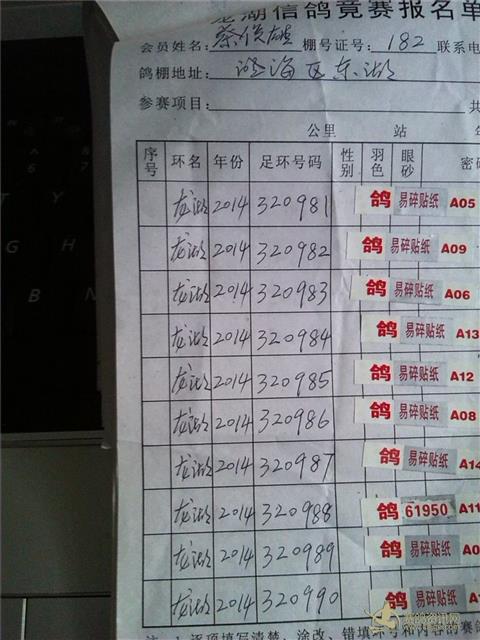 龙湖信鸽竞赛报名单
会员姓名: 蔡俊雄 棚号证号: 182 联系电
鸽棚地址: 澄海区东湖
参赛项目: 共
公里 站 年
序号 环名 年份 足环号码 性别 羽色 眼砂 密码
龙湖 2014 320981 鸽 易碎贴纸 A05
龙湖 2014 320982 鸽 易碎贴纸 A09
龙湖 2014 320983 鸽 易碎贴纸 A06
龙湖 2014 320984 鸽 易碎贴纸 A13
龙湖 2014 320985 鸽 易碎贴纸 A12
龙湖 2014 320986 鸽 易碎贴纸 A08
龙湖 2014 320987 鸽 易碎贴纸 A14
龙湖 2014 320988 鸽 61950 A11
龙湖 2014 320989 鸽 易碎贴纸 A0
龙湖 2014 320990 鸽 易碎贴纸 A1
注: 1.逐项填写清楚、涂改、错填环号和内容的赛鸽